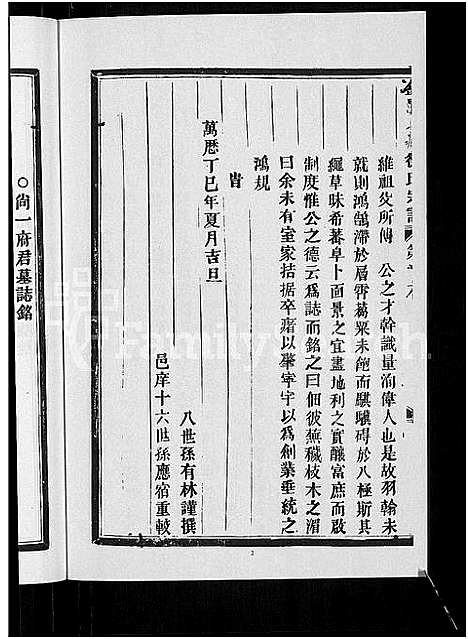 維祖父所傳　公之才幹識量洵偉人也是故羽翰未
就則鴻鵠滯於層霄葛粟未飽而騏驥碍於八極斯其
繩草昧希蕃阜卜面景之宜盡地利之實釀富庶而啟
制度惟公之德云爲誌而銘之曰佃彼蕪穢枝木之湄
曰余未有室家拮据卒瘏以肇宇以爲創業垂統之
鴻規
旹
萬歷丁巳年夏月吉旦
八世孫有林謹撰
邑庠十六世孫應宿重較
○尚一府君墓誌銘
2
FamilySearch